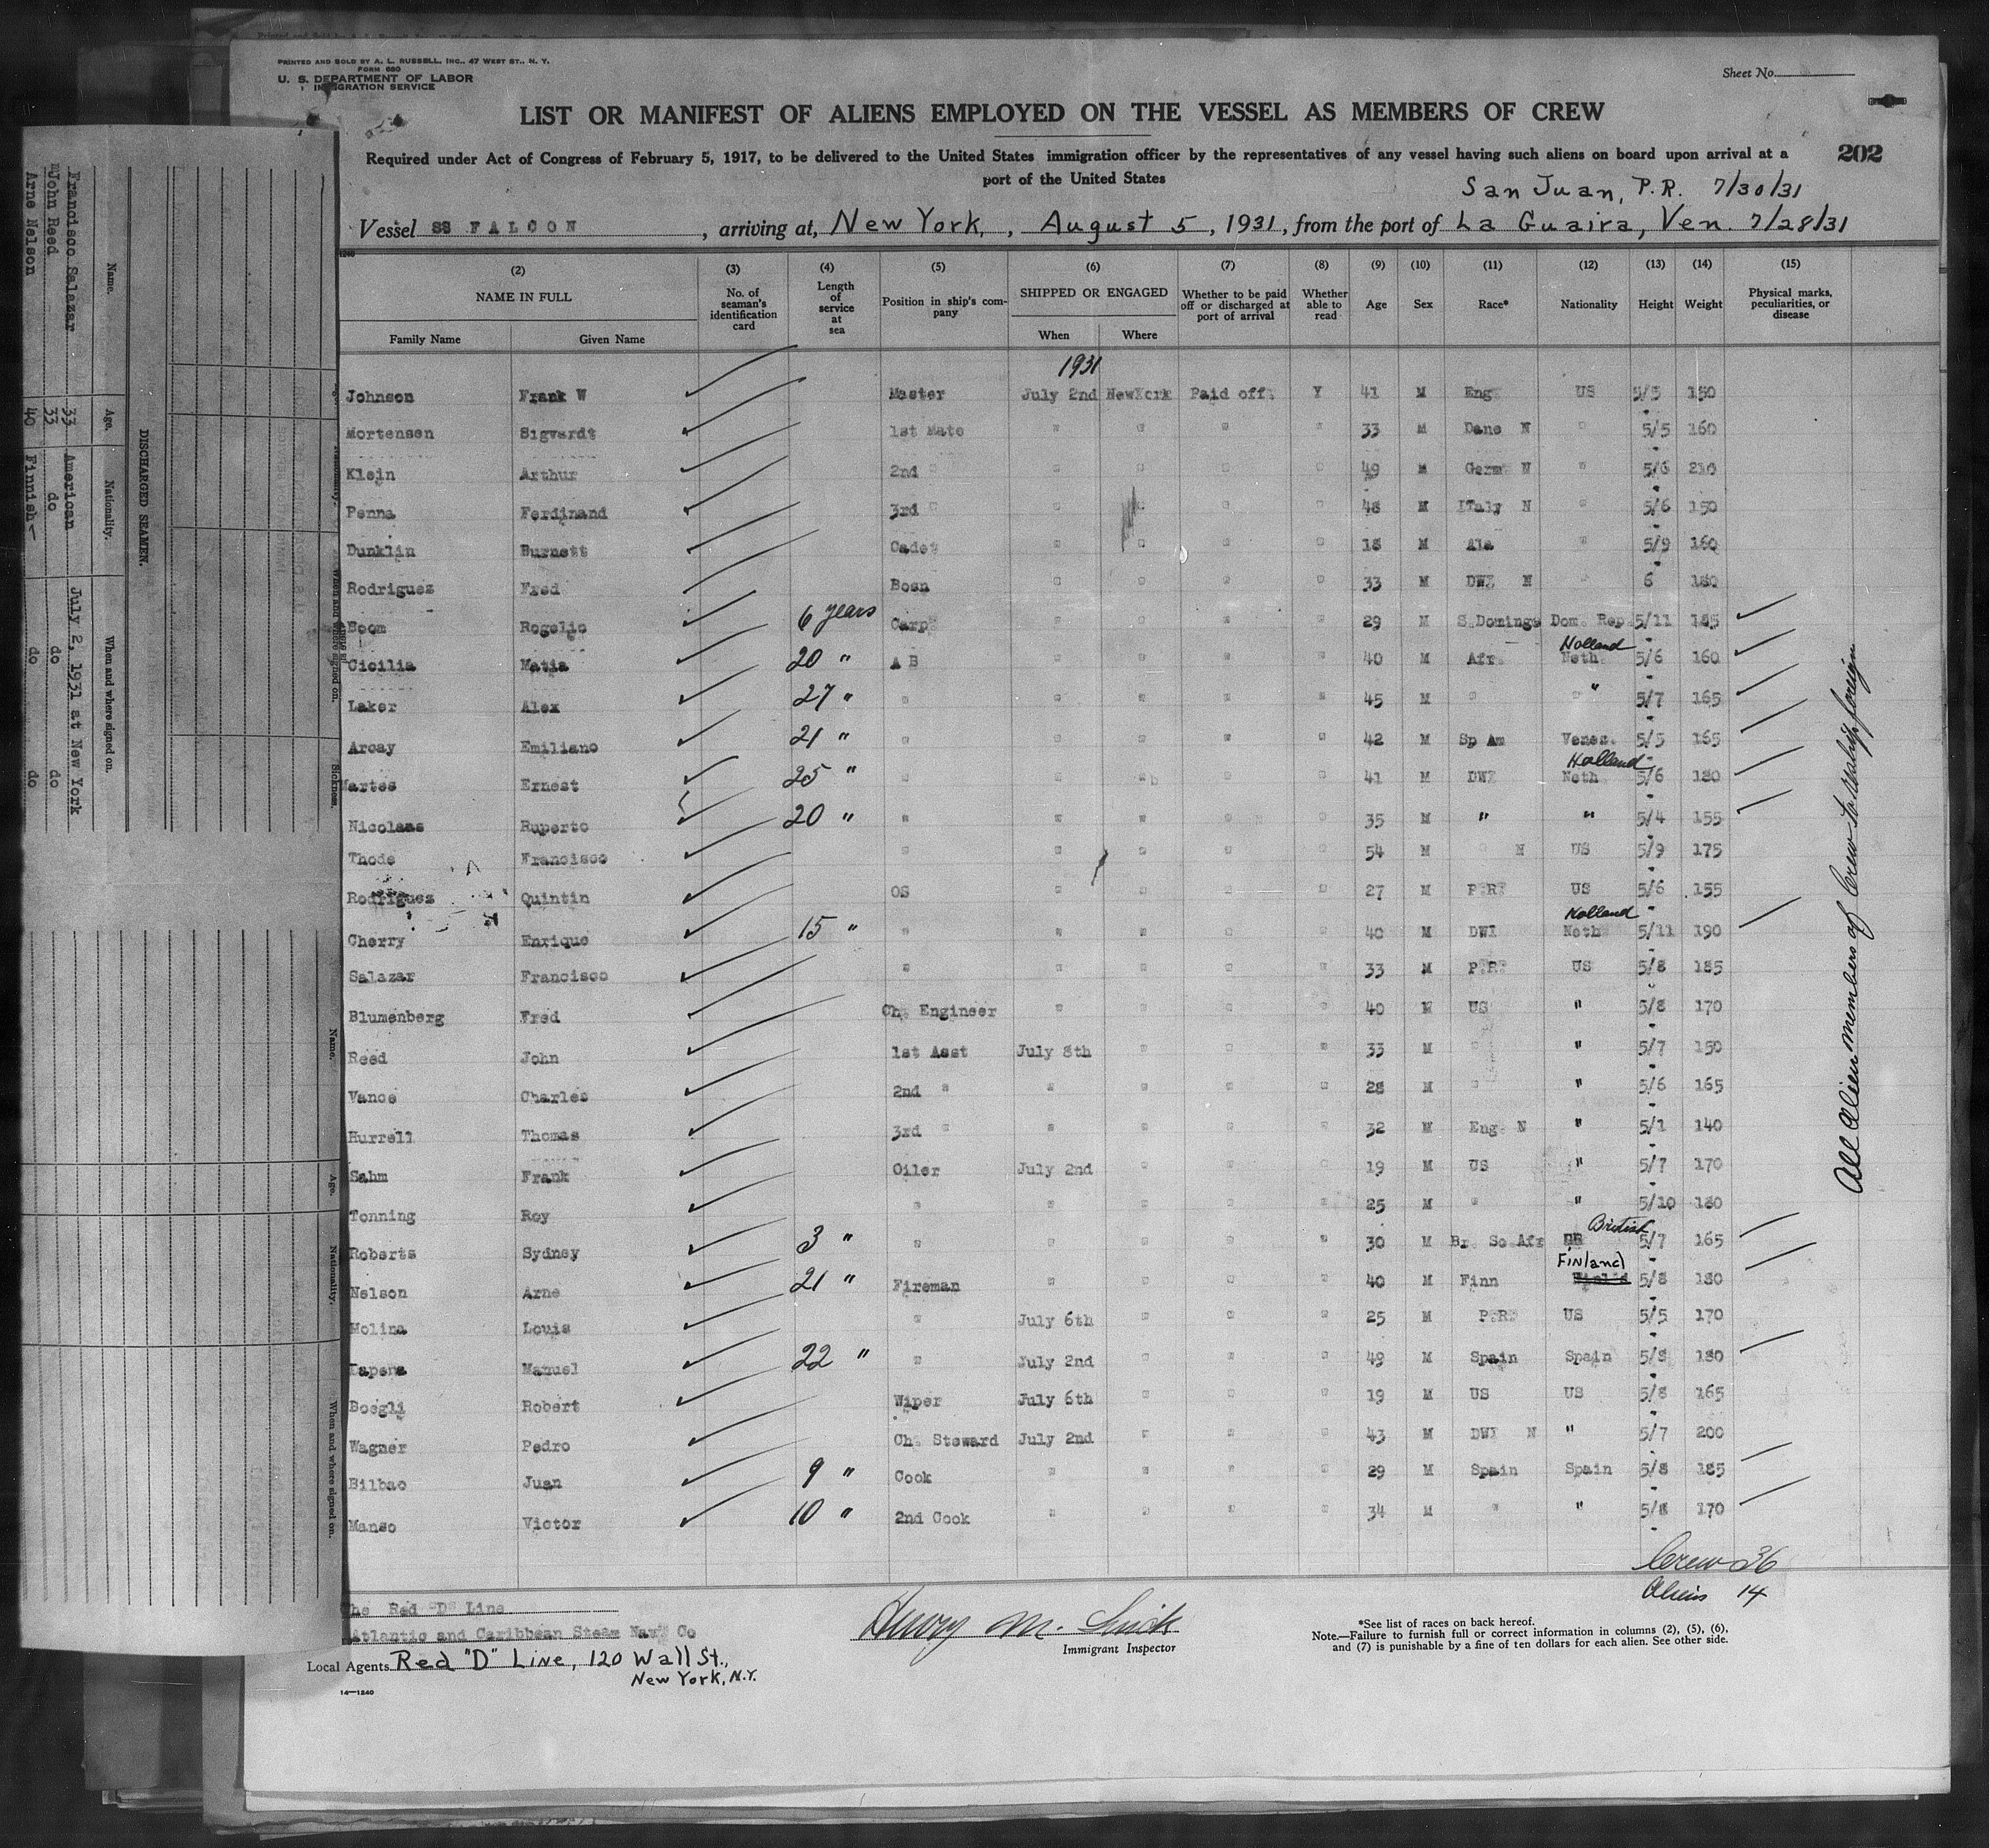 PRINTED AND SOLD BY A. L. RUSSELL, INC., 47 WEST ST., N. Y.
FORM 680
U. S. DEPARTMENT OF LABOR
IMMIGRATION SERVICE
Sheet No.
LIST OR MANIFEST OF ALIENS EMPLOYED ON THE VESSEL AS MEMBERS OF CREW
Required under Act of Congress of February 5, 1917, to be delivered to the United States immigration officer by the representatives of any vessel having such aliens on board upon arrival at a
port of the United States
202
San Juan, P.R. 7/30/31
Vessel SS FALCON, arriving at, New York, , August 5, 1931, from the port of La Guaira, Ven. 7/28/31
(2) (3) (4) (5) (6) (7) (8) (9) (10) (11) (12) (13) (14) (15)
NAME IN FULL No. of seaman's identification card Length of service at sea Position in ship's company SHIPPED OR ENGAGED Whether to be paid off or discharged at port of arrival Whether able to read Age Sex Race* Nationality Height Weight Physical marks, peculiarities, or disease
Family Name Given Name When Where
1931
Johnson Frank W Master July 2nd NewYork Paid off Y 41 M Eng US 5/5 150
Mortensen Sigvardt 1st Mate " " " " 33 M Dane N " 5/5 160
Klein Arthur 2nd " " " " " 49 M Germ N " 5/6 210
Penna Ferdinand 3rd " " " " " 48 M ITaly N " 5/6 150
Dunklin Burnett Cadet " " " " 18 M Ala " 5/9 160
Rodriguez Fred Bosn " " " " 33 M DWI N " 6 180
Boom Rogelio 6 years Carp " " " " 29 M S.Domingo Dom. Rep 5/11 185
Cicilia Matia 20 " A B " " " " 40 M Afr Holland Neth 5/6 160
Laker Alex 27 " " " " " " 45 M " " 5/7 165
Arcay Emiliano 21 " " " " " " 42 M Sp Am Venez. 5/5 165
Martes Ernest 25 " " " " " " 41 M DWI Holland Neth 5/6 180
Nicolaas Ruperto 20 " " " " " " 35 M " " 5/4 155
Thode Francisco " " " " " 54 M " N US 5/9 175
Rodriguez Quintin OS " " " " 27 M P.R. US 5/6 155
Cherry Enrique 15 " " " " " " 40 M DWI Holland Neth 5/11 190
Salazar Francisco " " " " " 33 M P.R. US 5/8 185
Blumenberg Fred Ch. Engineer " " " " 40 M US " 5/8 170
Reed John 1st Asst July 8th " " " 33 M " " 5/7 150
Vance Charles 2nd " " " " " 28 M " " 5/6 165
Hurrell Thomas 3rd " " " " " 32 M Eng. N " 5/1 140
Sahm Frank Oiler July 2nd " " " 19 M US " 5/7 170
Tonning Roy " " " " " 25 M " " 5/10 180
Roberts Sydney 3 " " " " " " 30 M Br. So.Afr British 5/7 165
Nelson Arne 21 " Fireman " " " " 40 M Finn Finland 5/8 180
Molina Louis " July 6th " " " 25 M P.R. US 5/5 170
Manuel 22 " " July 2nd " " " 49 M Spain Spain 5/8 180
Boegli Robert Wiper July 6th " " " 19 M US US 5/8 165
Wagner Pedro Ch. Steward July 2nd " " " 43 M DWI N " 5/7 200
Bilbao Juan 9 " Cook " " " " 29 M Spain Spain 5/8 185
Manso Victor 10 " 2nd Cook " " " " 34 M " " 5/8 170
All Alien members of Crew to reship foreign
Crew 36
Aliens 14
The Red "D" Line
Atlantic and Caribbean Steam Nav. Co
Local Agents Red "D" Line, 120 Wall St.,
New York, N.Y.
14—1240
Henry M.
Immigrant Inspector
*See list of races on back hereof.
Note.—Failure to furnish full or correct information in columns (2), (5), (6),
and (7) is punishable by a fine of ten dollars for each alien. See other side.
DISCHARGED SEAMEN.
Name. Age. Nationality. When and where signed on.
Francisco Salazar 33 American July 2, 1931 at New York
John Reed 33 do do do
Arne Nelson 40 Finnish do do
Sickness.
Name. Age. Nationality. When and where signed on.